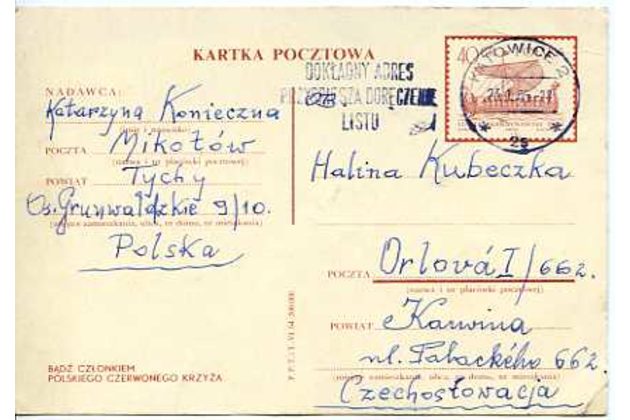 KARTKA POCZTOWA
NADAWCA:
Katarzyna Konieczna
(imię i nazwisko)
POCZTA Mikołów
(nazwa i nr placówki pocztowej)
POWIAT Tychy
Os. Grunwaldzkie 9/10.
(miejsce zamieszkania, ulica, nr domu, nr mieszkania)
Polska
BĄDŹ CZŁONKIEM
POLSKIEGO CZERWONEGO KRZYŻA
40
KATOWICE 2
2s
DOKŁADNY ADRES
PRZYSPIESZA DORĘCZENIE
LISTU
Halina Kubeczka
POCZTA Orlová I/662.
(nazwa i nr placówki pocztowej)
POWIAT Karwina
ul. Fabackého 662
(miejsce zamieszkania, ulica, nr domu, nr mieszkania)
Czechosłowacja